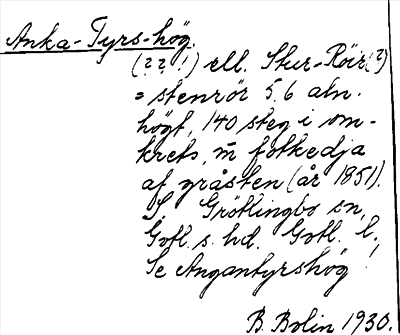 Anka-Tyrs-hög.
(?? !) ell. Stur-Röir(?)
= stenrör 5,6 aln.
högt, 140 steg i om-
krets, m̄ fotkedja
af gråsten (år 1851).
S. Grötlingbo sn,
Gotl. s. hd. Gotl. l.
Se Angantyrshög !
B. Bolin 1930.